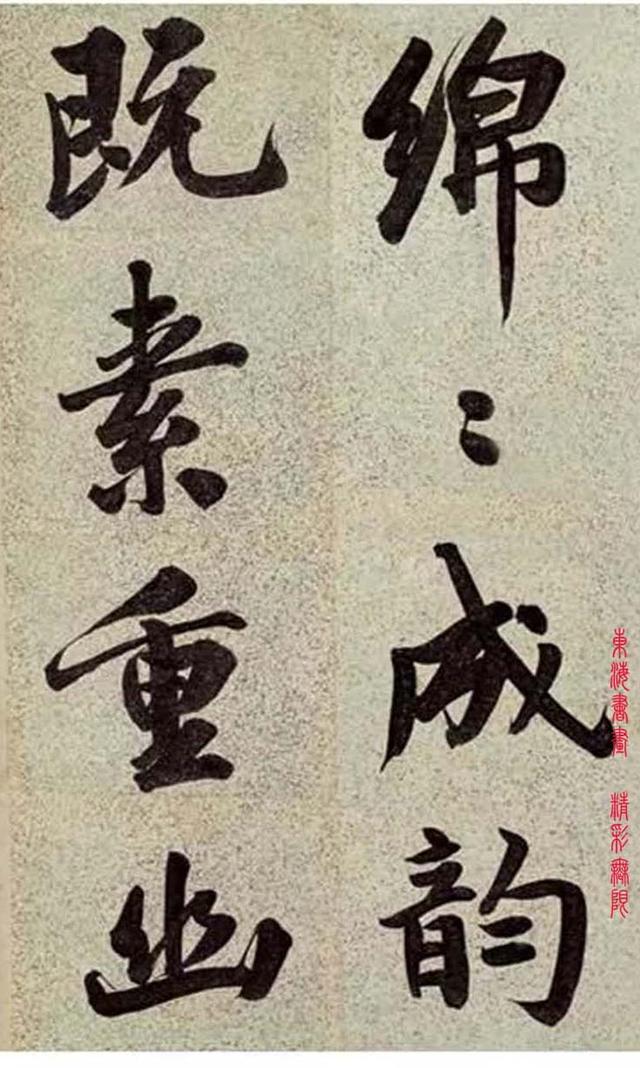 绵〻成韵
既素重幽
東海書畫 精彩無限